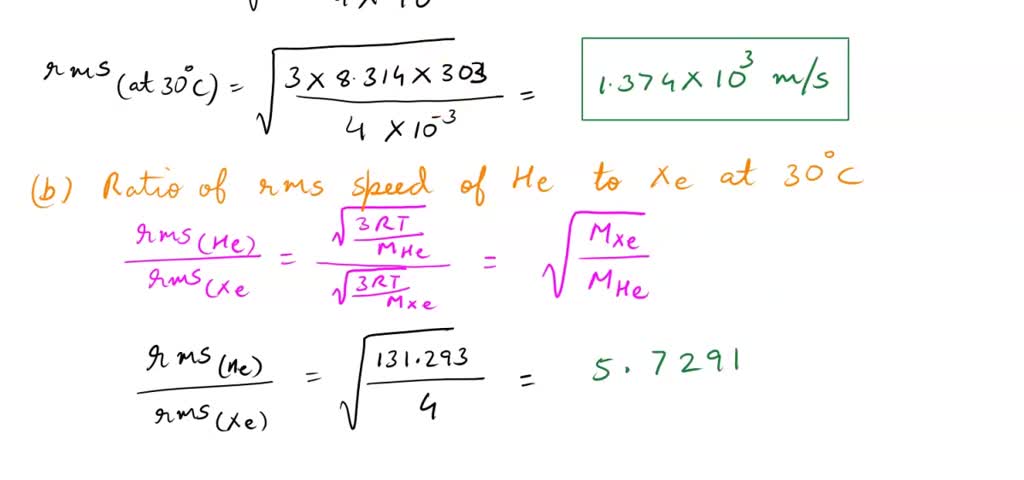 rms (at 30°C) = √(3 × 8.314 × 303 / 4 × 10⁻³) = 1.374 × 10³ m/s
(b) Ratio of rms speed of He to Xe at 30°C
rms(He) / rms(Xe = √(3RT / MHe) / √(3RT / MXe) = √(MXe / MHe)
rms(He) / rms(Xe) = √(131.293 / 4) = 5.7291